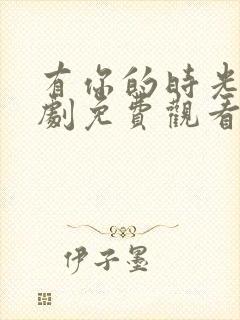 有你的時光
劇免費觀看
伊子墨